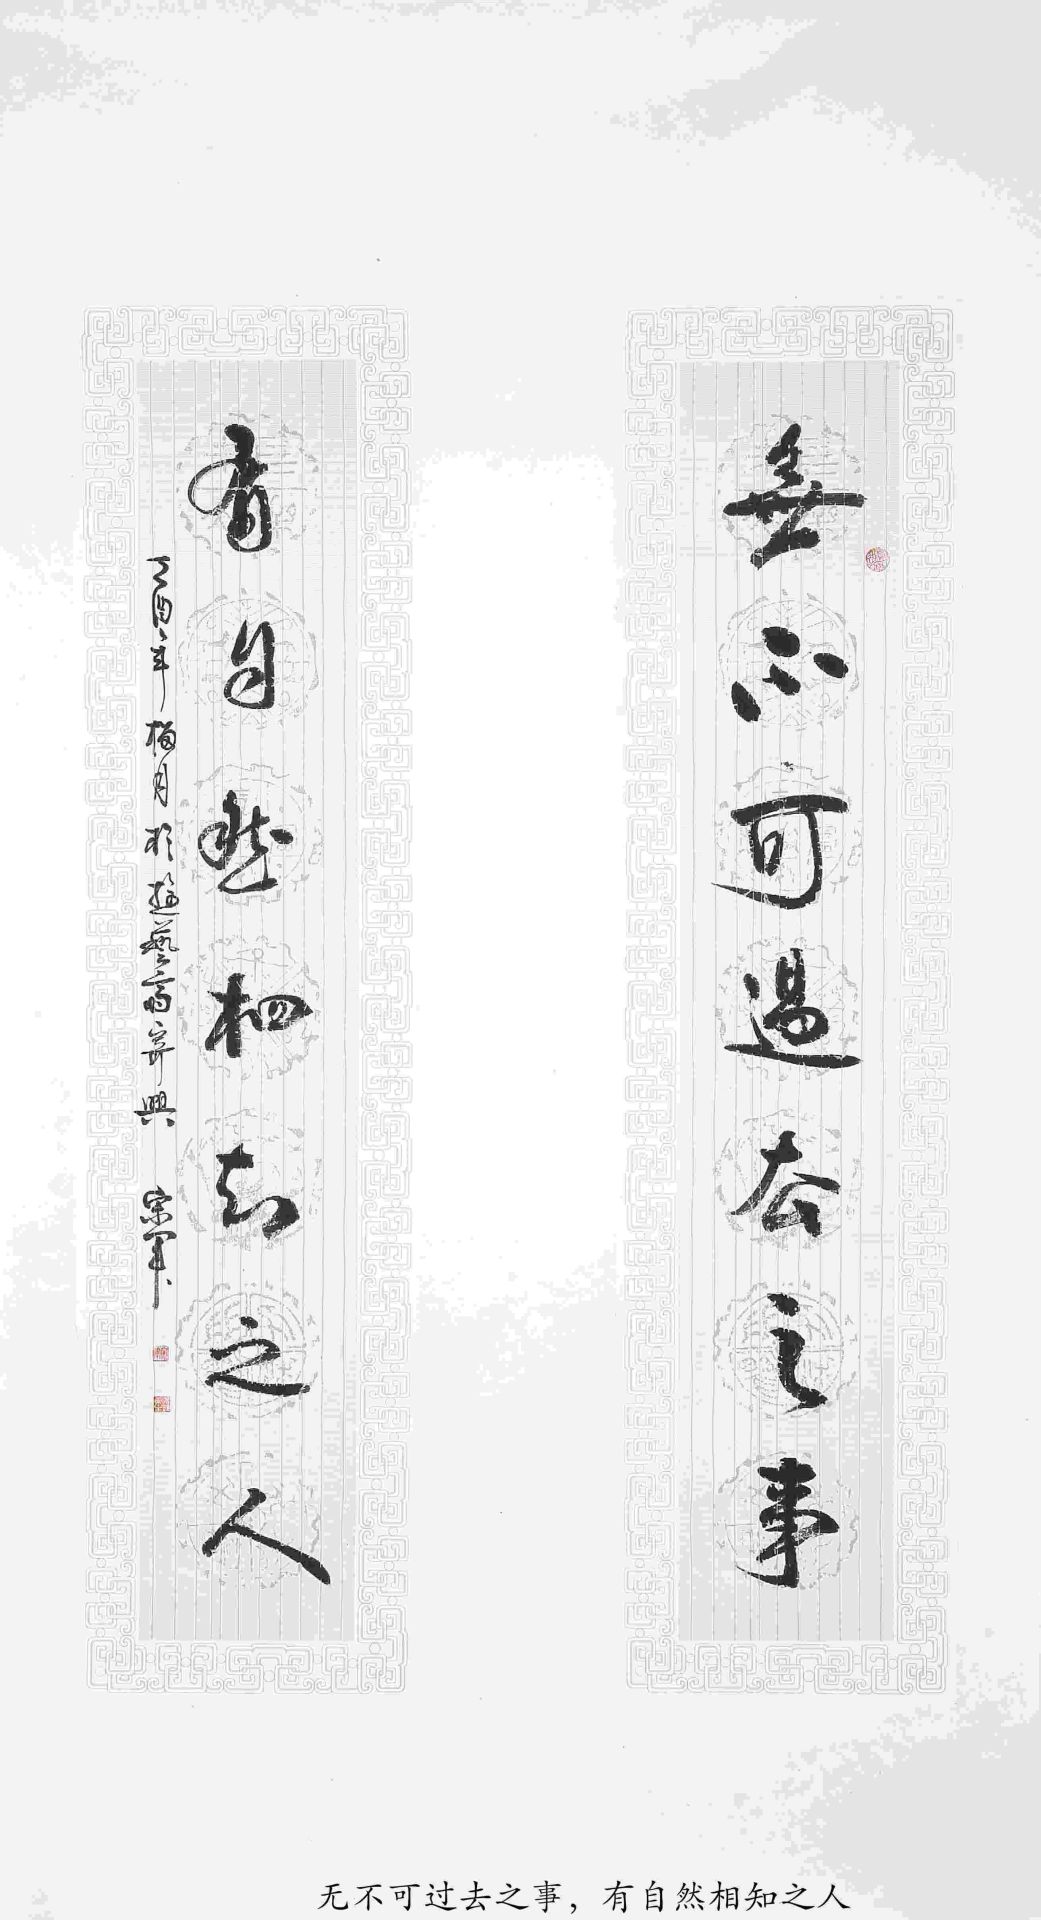 無不可過去之事
有自然相知之人
丁酉年梅月於遊藝齋弄興 宗軍
无不可过去之事，有自然相知之人